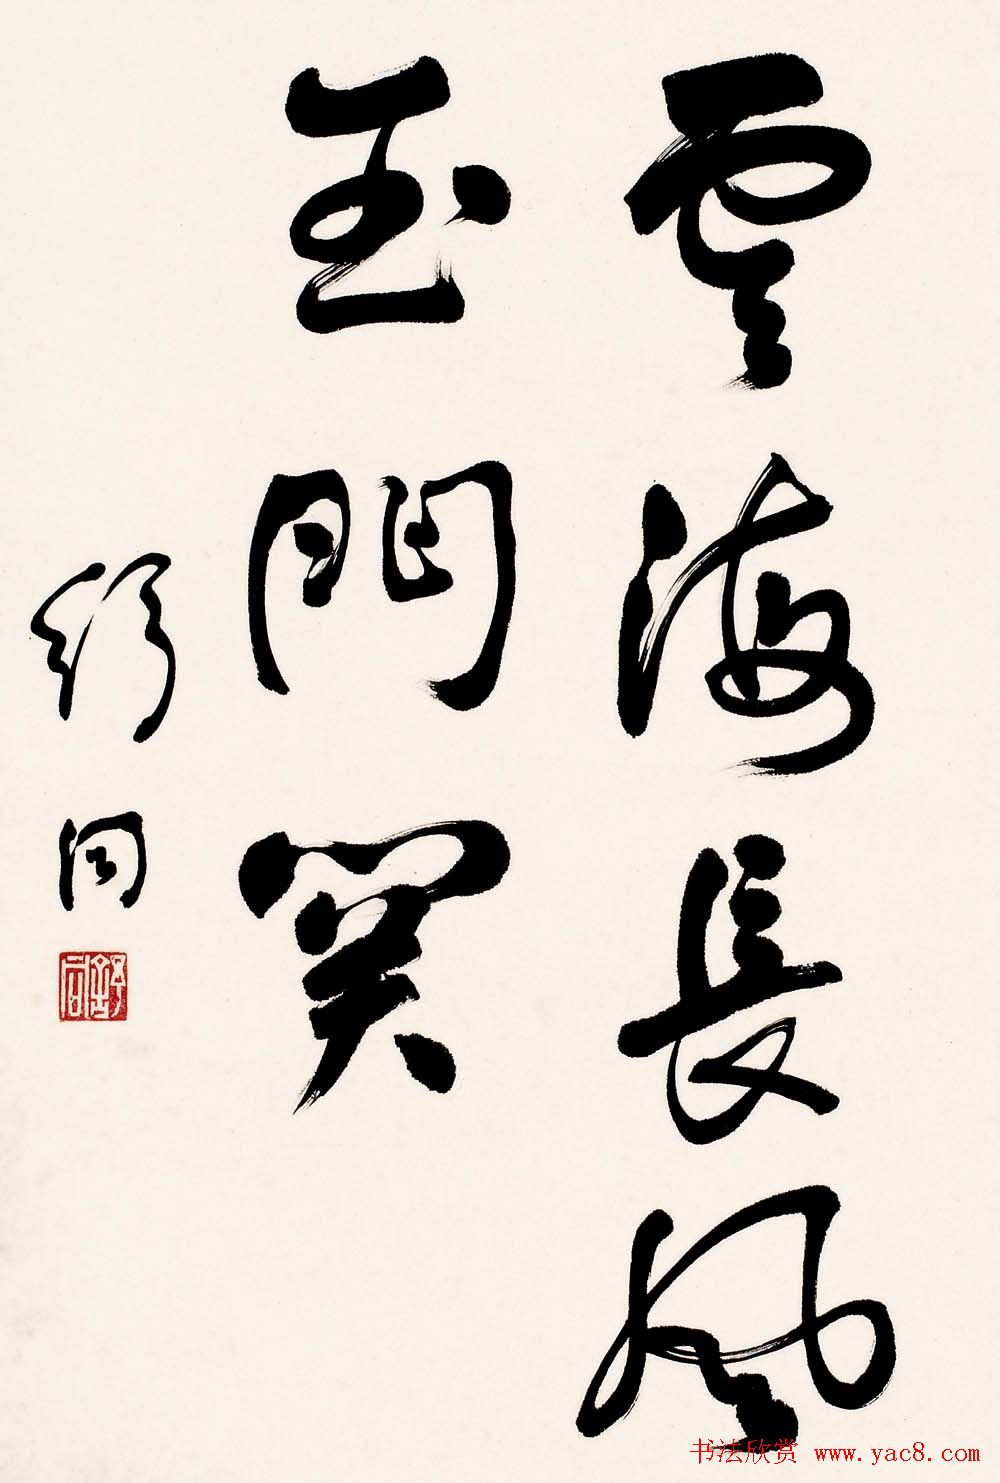 雲海長風
玉門關
舒同
舒同
书法欣赏 www.yac8.com